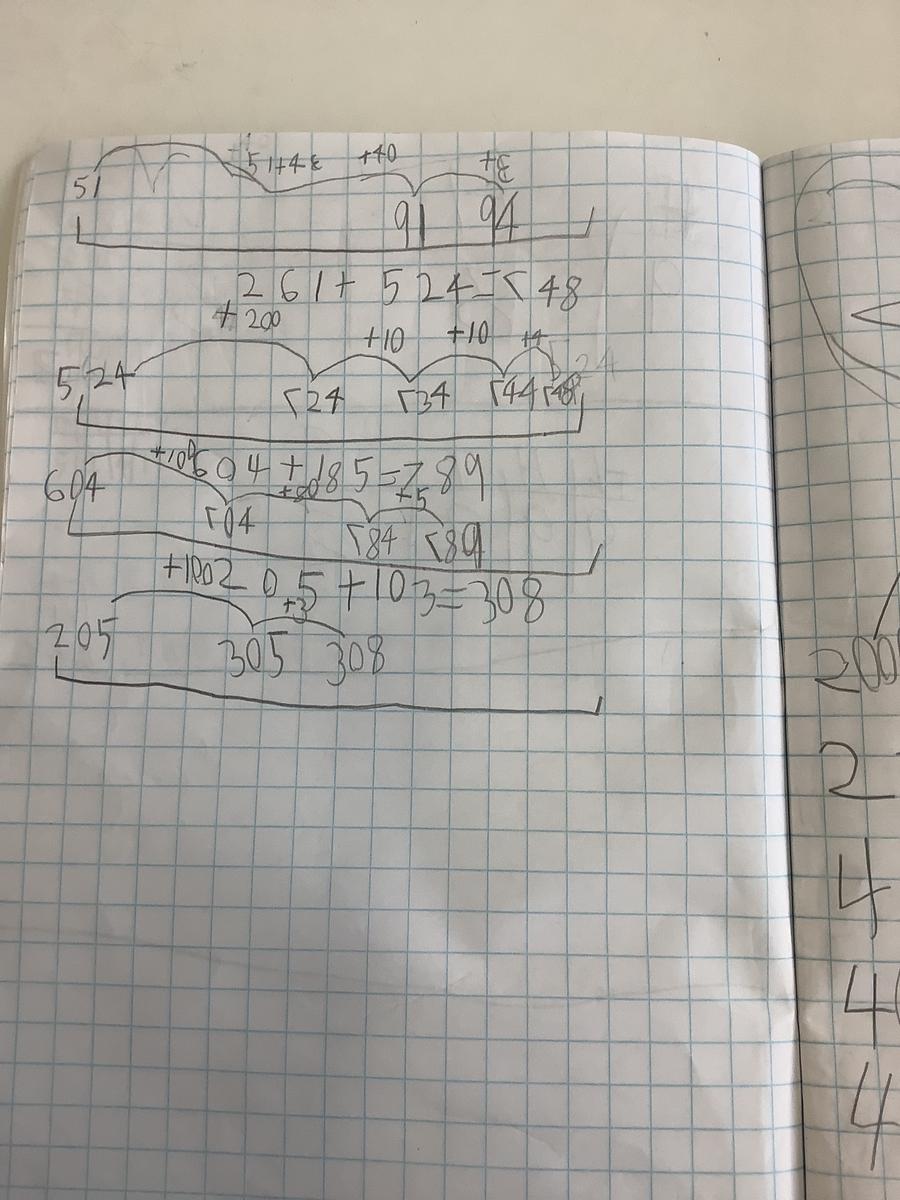 51+43 +40 +3
51 91 94
261+524=748
+200 +10 +10 +4
524 724 734 744 748
604+185=789
+100 +80 +5
604 704 784 789
205+103=308
+100 +3
205 305 308
200
2
4
4
4